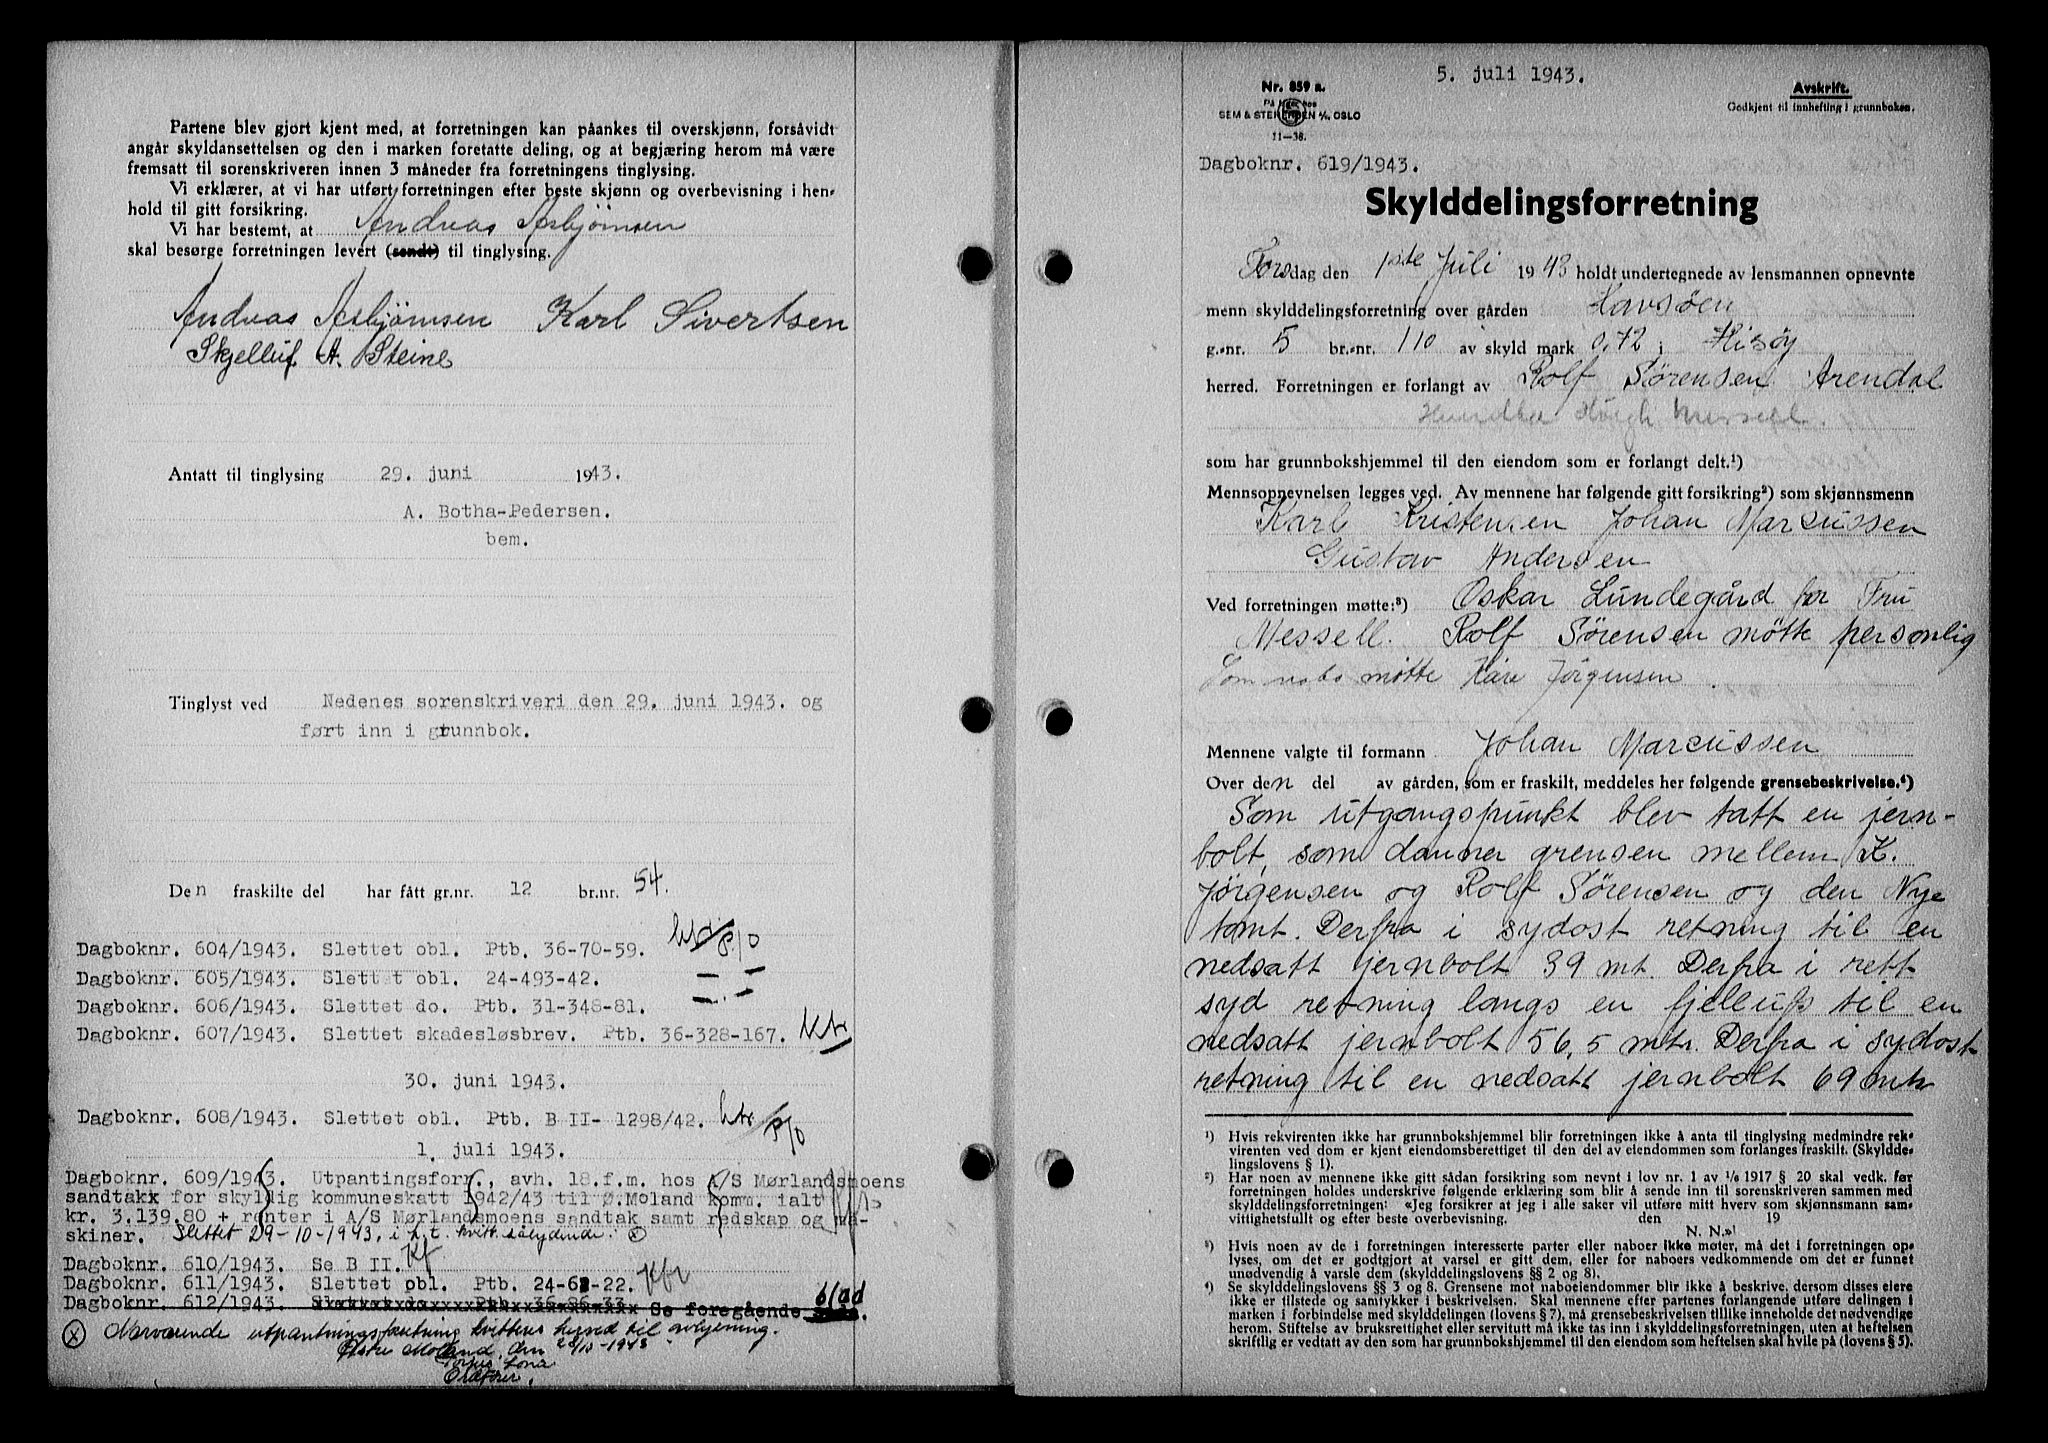 Partene blev gjort kjent med, at forretningen kan påankes til overskjønn, forsåvidt
angår skyldansettelsen og den i marken foretatte deling, og at begjæring herom må være
fremsatt til sorenskriveren innen 3 måneder fra forretningens tinglysing.
Vi erklærer, at vi har utført forretningen efter beste skjønn og overbevisning i hen-
hold til gitt forsikring.
Vi har bestemt, at Andreas Asbjørnsen
skal besørge forretningen levert (sendt) til tinglysing.
Andreas Asbjørnsen Karl Sivertsen
Skjelluf A. Steine
Antatt til tinglysing 29. juni 1943.
A. Botha-Pedersen.
bem.
Tinglyst ved Nedenes sorenskriveri den 29. juni 1943. og
ført inn i grunnbok.
Den fraskilte del har fått gr.nr. 12 br.nr. 54.
Dagboknr. 604/1943. Slettet obl. Ptb. 36-70-59.
Dagboknr. 605/1943. Slettet obl. 24-493-42.
Dagboknr. 606/1943. Slettet do. Ptb. 31-348-81.
Dagboknr. 607/1943. Slettet skadesløsbrev. Ptb. 36-328-167.
30. juni 1943.
Dagboknr. 608/1943. Slettet obl. Ptb. B II- 1298/42.
1. juli 1943.
Dagboknr. 609/1943. Utpantingsforr., avh. 18.f.m. hos A/S Mørlandsmoens
sandtak for skyldig kommuneskatt 1942/43 til Ø. Moland komm. ialt
kr. 3.139.80 + renter i A/S Mørlandsmoens sandtak samt redskap og ma-
skiner. Slettet 29-10-1943, i h.t. kvitt. sålydende. (x)
Dagboknr. 610/1943. Se B II.
Dagboknr. 611/1943. Slettet obl. Ptb. 24-62-22.
Dagboknr. 612/1943. Se foregående blad.
(x) Nærværende utpantningsforretning kvitteres herved til avlysning.
Østre Moland, den 28/10-1943

5. juli 1943.
Nr. 859 a.
På lager hos
SEM & STENERSEN A/S OSLO
11—38.
Avskrift.
Godkjent til innhefting i grunnboken.
Dagboknr. 619/1943.
Skylddelingsforretning
Torsdag den 1ste Juli 1943 holdt undertegnede av lensmannen opnevnte
menn skylddelingsforretning over gården Havsøen
g.-nr. 5 br.-nr. 110 av skyld mark 0,72 i Hisøy
herred. Forretningen er forlangt av Rolf Sørensen Arendal
som har grunnbokshjemmel til den eiendom som er forlangt delt.¹)
Mennsopnevnelsen legges ved. Av mennene har følgende gitt forsikring²) som skjønnsmenn
Karl Kristensen Johan Marcussen
Gustav Andersen
Ved forretningen møtte:³) Oskar Lundegård for Fru
Messell. Rolf Sørensen møtte personlig
Som nabo møtte Kåre Jørgensen.
Mennene valgte til formann Johan Marcussen
Over den del av gården, som er fraskilt, meddeles her følgende grensebeskrivelse.⁴)
Som utgangspunkt blev tatt en jern-
bolt, som danner grensen mellem K.
Jörgensen og Rolf Sörensen og den Nye
tomt. Derfra i sydost retning til en
nedsatt jernbolt 39 mt. Derfra i rett
syd retning langs en fjellufs til en
nedsatt jernbolt 56,5 mtr. Derfra i sydost
retning til en nedsatt jernbolt 69 mtr
¹) Hvis rekvirenten ikke har grunnbokshjemmel blir forretningen ikke å anta til tinglysing medmindre rek-
virenten ved dom er kjent eiendomsberettiget til den del av eiendommen som forlanges fraskilt. (Skyldde-
lingslovens § 1).
²) Har noen av mennene ikke gitt sådan forsikring som nevnt i lov nr. 1 av 1/6 1917 § 20 skal vedk. før
forretningen holdes underskrive følgende erklæring som blir å sende inn til sorenskriveren sammen med
skylddelingsforretningen: «Jeg forsikrer at jeg i alle saker vil utføre mitt hverv som skjønnsmann sam-
vittighetsfullt og efter beste overbevisning. den 19
N. N.»
³) Hvis noen av de i forretningen interesserte parter eller naboer ikke møter, må det i forretningen op-
lyses, om det er godtgjort at varsel er gitt dem, eller for naboers vedkommende om det er funnet
unødvendig å varsle dem (skylddelingslovens §§ 2 og 8).
⁴) Se skylddelingslovens §§ 3 og 8. Grensene mot naboeiendommer blir ikke å beskrive, dersom disses eiere
ikke er tilstede og samtykker i beskrivelsen. Skal mennene efter partenes forlangende utføre delingen i
marken i forbindelse med skylddelingen (lovens § 7), må grensebeskrivelsen tillike inneholde det nødvendige
herom. Stiftelse av bruksrettighet eller servitutt må ikke tas inn i skylddelingsforretningen, uten at heftelsen
skriftlig er vedtatt av den som har grunnbokshjemmel til den eiendom som heftelsen skal hvile på (lovens § 5).